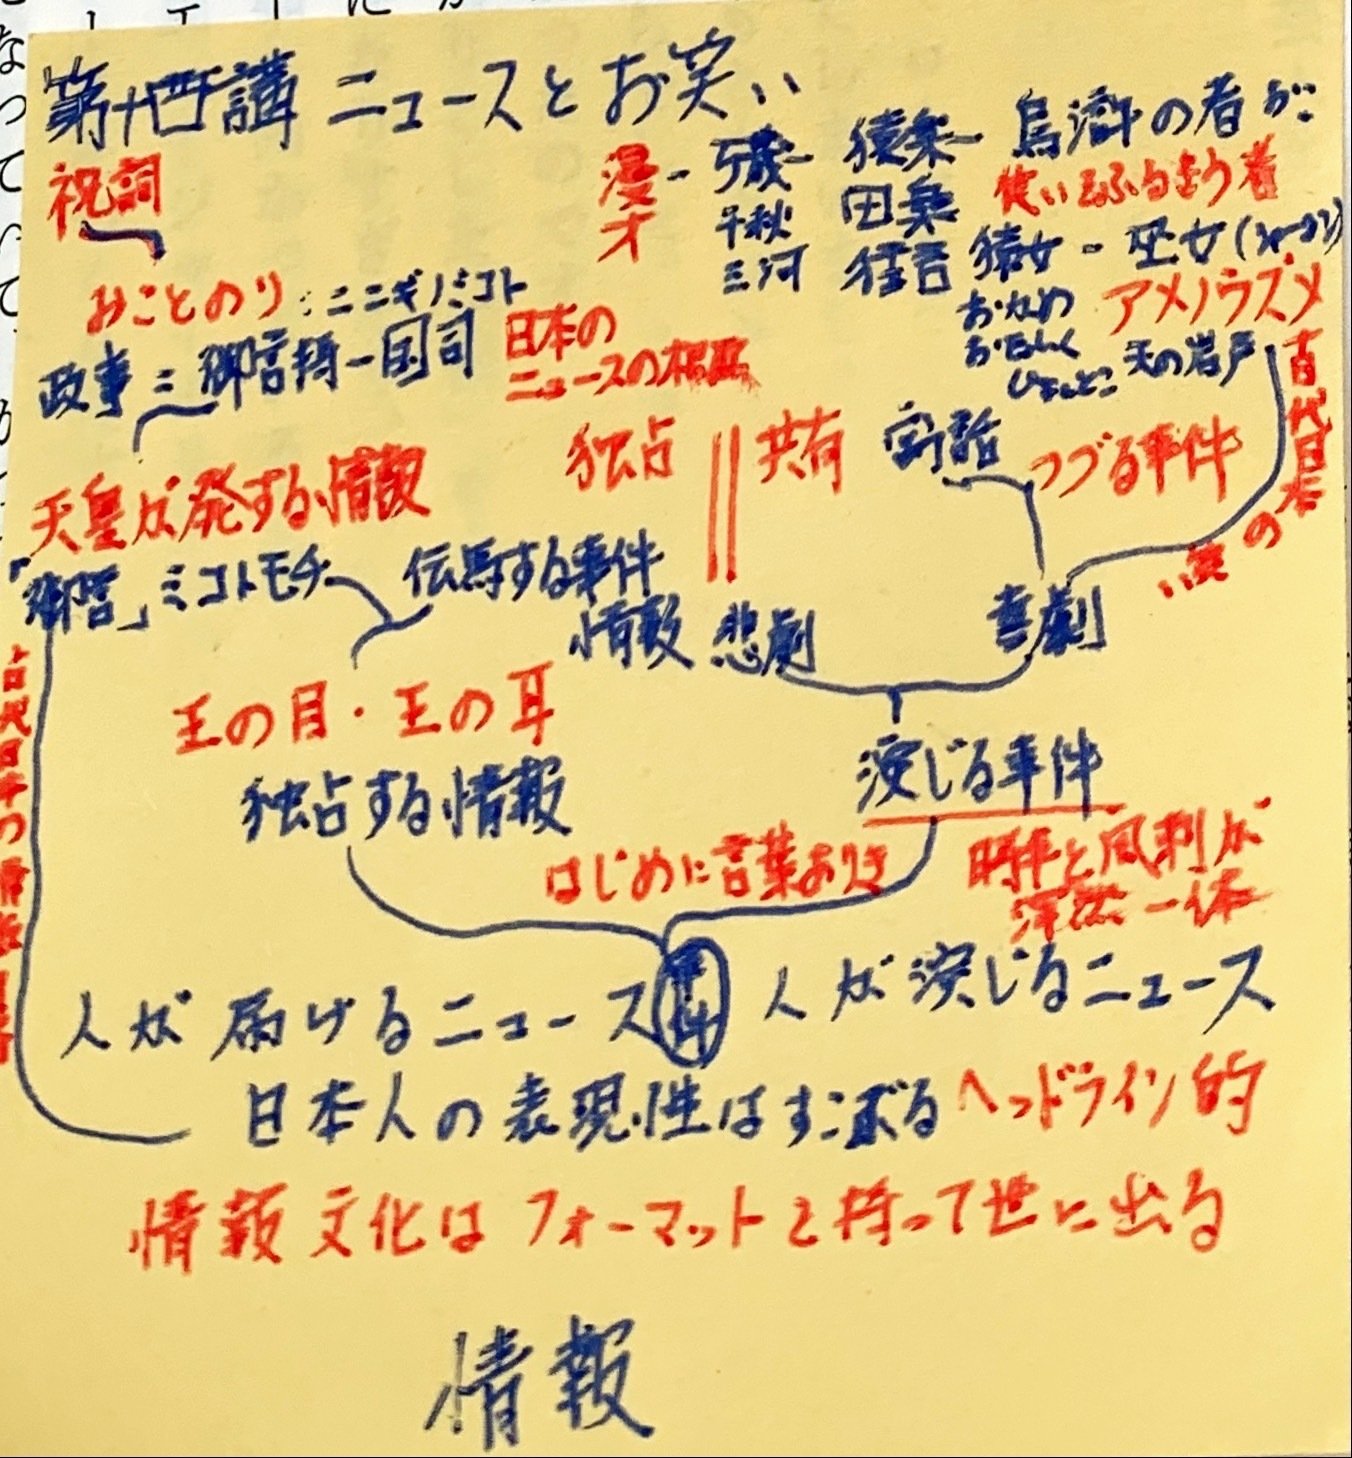 第十四講 ニュースとお笑い
祝詞
みことのり：ニニギノミコト
政事＝御言持－国司
日本の
ニュースの相貌
漫才－万歳－猿楽－烏滸の者が
千秋 田楽 使いるふるまう者
三河 狂言 猿女－巫女(シャーマン)
おかめ アメノウズメ
おたふく 天の岩戸
ひょっとこ
古代日本の笑い
独占 共有
寓話 つづる事件
天皇が発する情報
「御言」ミコトモチ 伝馬する事件
情報 悲劇 喜劇
王の目・王の耳
独占する情報
演じる事件
はじめに言葉ありき
時事と風刺が
渾然一体
古代日本の情報
人が届けるニュース 事件 人が演じるニュース
日本人の表現性はすこぶるヘッドライン的
情報文化はフォーマットと持って世に出る
情報